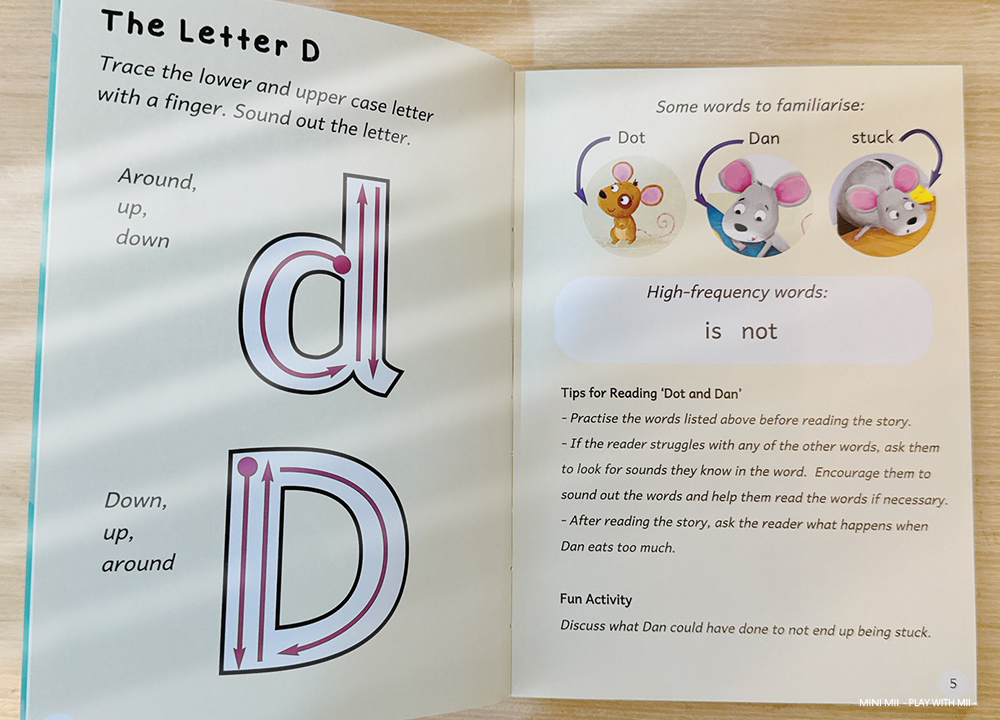 The Letter D
Trace the lower and upper case letter
with a finger. Sound out the letter.
Around,
up,
down
Down,
up,
around
Some words to familiarise:
Dot Dan stuck
High-frequency words:
is not
Tips for Reading ‘Dot and Dan’
- Practise the words listed above before reading the story.
- If the reader struggles with any of the other words, ask them
to look for sounds they know in the word. Encourage them to
sound out the words and help them read the words if necessary.
- After reading the story, ask the reader what happens when
Dan eats too much.
Fun Activity
Discuss what Dan could have done to not end up being stuck.
5
MINI MII - PLAY WITH MII -